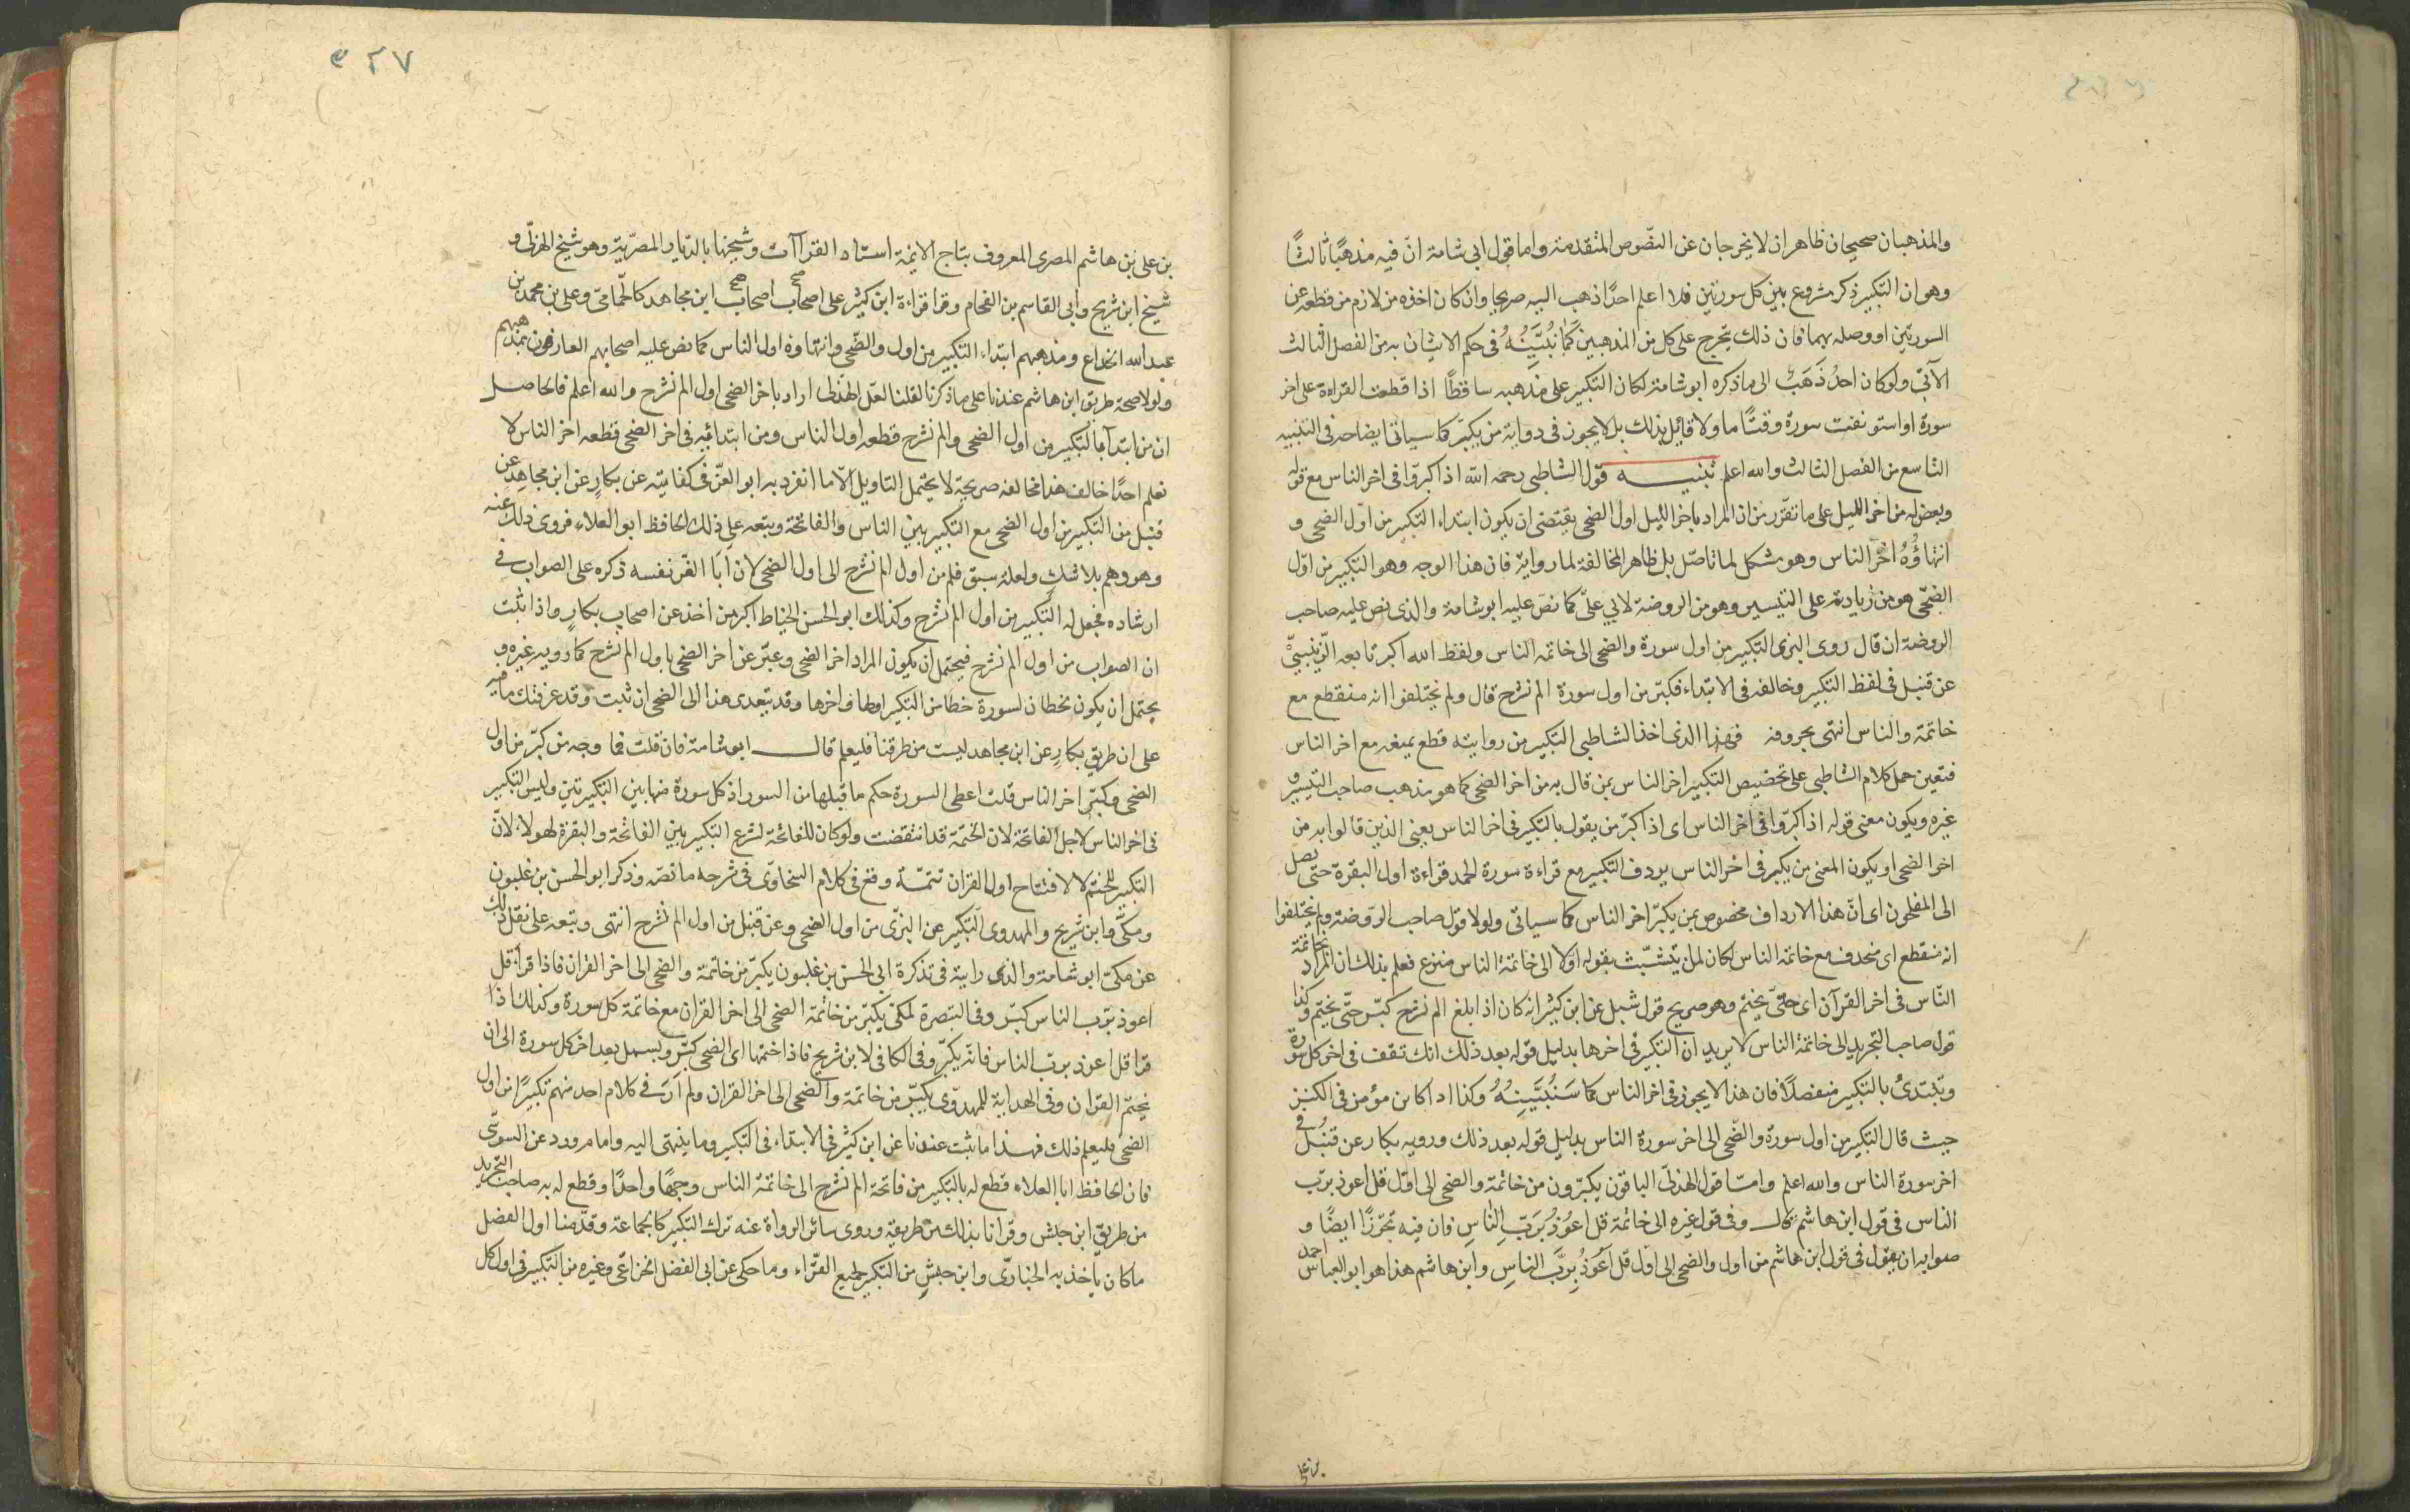 والمذهبان صحيحان ظاهران لا يخرجان عن النصوص المتقدمة واما قول ابى شامة انّ فيه مذهبًا ثالثًا
وهو ان التكبير ذكر مشروع بين كل سورتين فلا اعلم احدًا ذهب اليه صريحا وان كان اخذه من لازم من قطعه عن
السورتين او وصله بهما فان ذلك يتخرج على كل من المذهبين كما نُبَيِّنُهُ فى حكم الاتيان به من الفصل الثالث
الآتى ولو كان احدُ ذَهَبَ الى ما ذكره ابو شامة لكان التكبير على مذهبه ساقطًا اذا قطعت القراءة على اخر
سورة او استونفت سورة وقتًا ما ولا قائل بذلك بل لا يجوز فى رواية من يكبّر كما سياتى ايضاحه فى التنبيه
التاسع من الفصل الثالث والله اعلم تنبيه قول الشاطبى رحمه الله اذا كبّروا فى اخر الناس مع قوله
وبعض له من اخر الليل على ما تقرّر من ان المراد باخر الليل اول الضحى يقتضى ان يكون ابتداء التكبير من اوّل الضحى و
انتهاؤُهُ اخرَ الناس وهو مشكل لما تاصّل بل ظاهر المخالفة لما رواه فان هذا الوجه وهو التكبير من اوّل
الضحّى هو من زيادته على التيسير وهو من الروضة لابى علىّ كما نصّ عليه ابو شامة والذى نص عليه صاحب
الروضة ان قال روى البزى التكبير من اول سورة والضحى الى خاتمة الناس ولفظ الله اكبر تابعه الزّينبىّ
عن قنبل فى لفظ التكبير وخالفه فى الابتداء فكبّر من اول سورة الم نشرح قال ولم يختلفوا انه منقطع مع
خاتمة والناس انتهى بحروفه فهذا الذى اخذ الشاطبى التكبير من روايته قطع بمنعه مع اخر الناس
فتعين حمل كلام الشاطبى على تخصيص التكبير اخر الناس بمن قال به من اخر الضحى كما هو مذهب صاحب التيسير و
غيره ويكون معنى قوله اذا كبّروا فى اخر الناس اى اذا كبّر من يقول بالتكبير فى اخر الناس يعنى الذين قالوا به من
اخر الضحى او يكون المعنى من يكبر فى اخر الناس يردف التكبير مع قراءة سورة الحمد قراءة اول البقرة حتّى يصل
الى المفلحون اى انّ هذا الارداف مخصوص بمن يكبّر اخر الناس كما سياتى ولولا قول صاحب الروّضة ولم يختلفوا
انه منقطع اى منحذف مع خاتمة الناس لكان لمن يتشبّث بقوله اوّلا الى خاتمة الناس منزع فعلم بذلك ان المراد بخاتمة
النّاس فى اخر القرآن اى حتّى يختم وهو صريح قول شبل عن ابن كثير انه كان اذا بلغ الم نشرح كبّر حتّى يختم وكذا
قول صاحب التجريد الى خاتمة الناس لا يريد ان التكبير فى اخرها بدليل قوله بعد ذلك انك تقف فى اخر كل سورة
وتبتدئ بالتكبير منفصلاً فان هذا لا يجوز فى اخر الناس كما سَنُبَيِّنُهُ وكذا اراد ابن مؤمن فى الكنز
حيث قال التكبير من اول سورة والضّحى الى اخر سورة الناس بدليل قوله بعد ذلك ورويه بكار عن قنبُل فى
اخر سورة الناس والله اعلم وامّا قول الهذلىّ الباقون يكبّرون من خاتمة والضحى الى اوّل قل اعوذ بربّ
الناس فى قول ابن هاشم قال وفى قول غيره الى خاتمة قل اعُوذُ بُرَبّ النّاسِ فان فيه تجوّزًا ايضًا و
صوابه ان يقول فى قول ابن هاشم من اول والضحى الى اوّل قل اَعُوذُ بِرَبّ الناسِ وابن هاشم هذا هو ابو العباس احمد
بن على
٥٢٧
بن على بن هاشم المصرى المعروف بتاج الائمة استاد القراآت وشيخها بالدّيار المصرّية وهو شيخ الهذلّى و
شيخ ابن شريح وابى القاسم بن الفحام وقرا قراءة ابن كثير على اصحاب اصحاب ابن مجاهد كالحمّامىّ وعلى بن محمد بن
عبد الله الحذاء ومذهبهم ابتداء التكبير من اول والضّحى وانتهاؤه اول الناس كما نص عليه اصحابهم العارفون بمذهبهم
ولولا صحة طريق ابن هاشم عندنا على ما ذكرنا لقلنا لعّل الهذلى اراد باخر الضحى اول الم نشرح والله اعلم فالحاصل
ان من ابتدآ بالتكبير من اول الضحى والم نشرح قطعه اول الناس ومن ابتدائه فى اخر الضحى قطعه اخر الناس لا
نعلم احدًا خالف هذا مخالفة صريحة لا يحتمل التاويل الّا ما انفرد به ابو العزّ فى كفايته عن بكارٍ عن ابن مجاهد عن
قنبل من التكبير من اول الضحى مع التكبير بين الناس والفاتحة وتبعه على ذلك الحافظ ابو العلاء فروى ذلك عنه
وهو وهم بلا شك ولعله سبق قلم من اول الم نشرح الى اول الضحى لان اَبا العّز نفسه ذكره على الصواب فى
ارشاده فجعل له التكبير من اول الم نشرح وكذلك ابو الحسن الخياط اكبر من اخذ عن اصحاب بكارٍ واذا ثبت
ان الصواب من اول الم نشرح فيحتمل ان يكون المراد اخر الضحى وعبّر عن اخر الضحى باول الم نشرح كما رويه غيره و
يحتمل ان يكون لخطا لسورة خطاً من التكبير اولها واخرها وقد يتعدى هذا الى الضحى ان ثبت وقد عرفتك ما فيه
على ان طريق بكارٍ عن ابن مجاهد ليست من طرقنا فليعلم قال ابو شامة فان قلت فما وجه من كبّر من اول
الضحى وكبّر اخر الناس قلت اعطى السورة حكم ما قبلها من السور اذ كل سورة منها بين التكبيرتين وليس التكبير
فى اخر الناس لاجل الفاتحة لان الختمة قد انقضت ولو كان للفاتحة لشرع التكبير بين الفاتحة والبقرة لهولاء لانّ
التكبير للختم لا لافتتاح اول القران تتمّة وقع فى كلام السخاوّى فى شرحه ما نصّه وذكر ابو الحسن بن غلبون
ومكّى وابن شريح والمهدوى التكبير عن البزّى من اول الضحى وعن قنبل من اول الم نشرح انتهى وتبعه على نقل ذلك
عن مكىّ ابو شامة والذى رايته فى تذكرة ابى الحسن بن غلبون يكبّر من خاتمة والضحى الى اخر القران فاذا قرا قل
اعوذ بربّ الناس كبّر وفى التبصرة لمكىّ يكبّر من خاتمة الضحى الى اخر القران مع خاتمة كل سورة وكذلك اذا
قرا قل اعوذ برب الناس فانه يكبّر وفى الكافى لابن شريح فاذا ختمتها اى الضحى كبّر وبسمل بعد اخر كل سورة الى ان
يختم القران وفى الهداية للمهدوّى يكبّر من خاتمة والضحى الى اخر القران ولم اَرَ فى كلام احد منهم تكبيرًا من اول
الضحى فليعلم ذلك فهذا ما ثبت عندنا عن ابن كثير فى الابتداء فى التكبير وما ينتهى اليه واما ما ورد عن السوسّى
فان الحافظ ابا العلاء قطع له بالتكبير من فاتحة الم نشرح الى خاتمة الناس وجهًا واحدًا وقطع له به صاحب التجريد
من طريق ابن حبش وقرانا بذلك من طريقه وروى سائر الرواة عنه ترك التكبير كالجماعة وقدّمنا اول الفصل
ما كان ياخذ به الخبازّى وابن حبش من التكبير لجميع القرّاء وما حكى عن ابى الفضل الخزاعّى وغيره من التكبير فى اول كل